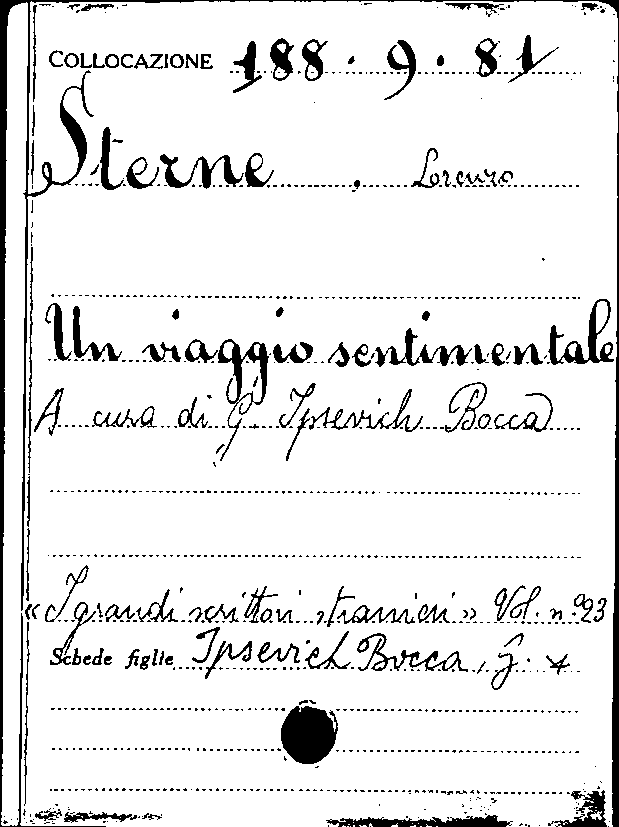 COLLOCAZIONE 188 · 9 · 81
Sterne, Lorenzo
Un viaggio sentimentale
A cura di G. Ipsevich Bocca
« I grandi scrittori stranieri » Vol. n.º 93
Schede figlie Ipsevich Bocca, G.